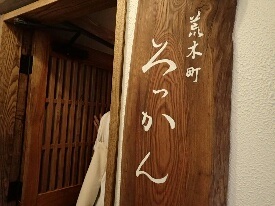 荒木町
ろっかん